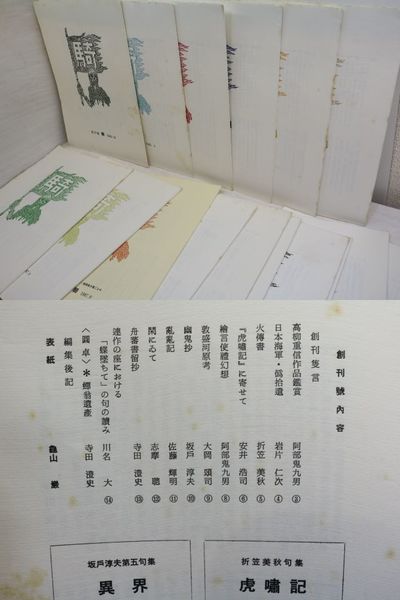 騎
騎
騎
創刊號内容
創刊隻言
高柳重信作品鑑賞 阿部鬼九男 ③
日本海軍・鎷拾遺 岩片仁次 ④
火傳書 折笠美秋 ⑤
『虎嘯記』に寄せて 安井浩司 ⑥
繪言使禮幻想 阿部鬼九男 ⑧
敦盛河原考 大岡頌司 ⑨
幽鬼抄 坂戸淳夫 ⑩
亂亂記 佐藤輝明 ⑪
閑にゐて 志摩聰 ⑫
舟番書留抄 寺田澄史 ⑬
連作の座における
「蝶墜ちて」の句の讀み 川名大 ⑭
〈圓卓〉＊蟬翁遺產 寺田澄史
編集後記
表紙 龜山巌
折笠美秋句集
虎嘯記
坂戸淳夫第五句集
異界